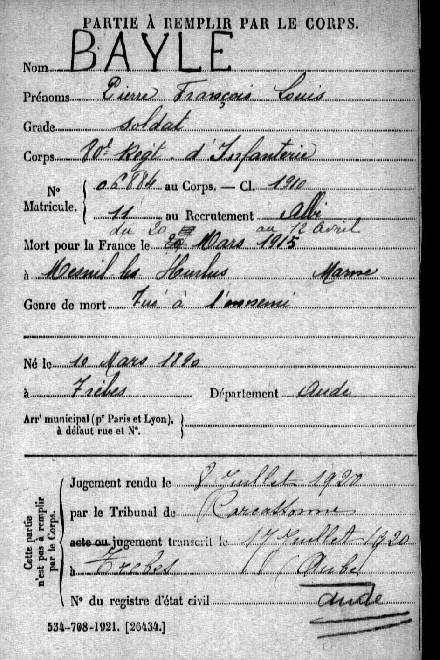 PARTIE À REMPLIR PAR LE CORPS.
Nom BAYLE
Prénoms Pierre François Louis
Grade soldat
Corps 80e Regt d'Infanterie
N° Matricule. 06884 au Corps. — Cl. 1910
11 au Recrutement Albi
du 20 au 12 avril
Mort pour la France le Mars 1915
à Mesnil les Hurlus Marne
Genre de mort Tué à l'ennemi
Né le 10 Mars 1890
à Trèbes Département Aude
Arrt municipal (pr Paris et Lyon), à défaut rue et N°.
Cette partie n'est pas à remplir par le Corps.
Jugement rendu le 8 Juillet 1920
par le Tribunal de Carcassonne
acte ou jugement transcrit le 17 Juillet 1920
à Trebes (Aube)
N° du registre d'état civil Aude
534-708-1921. [26434.]